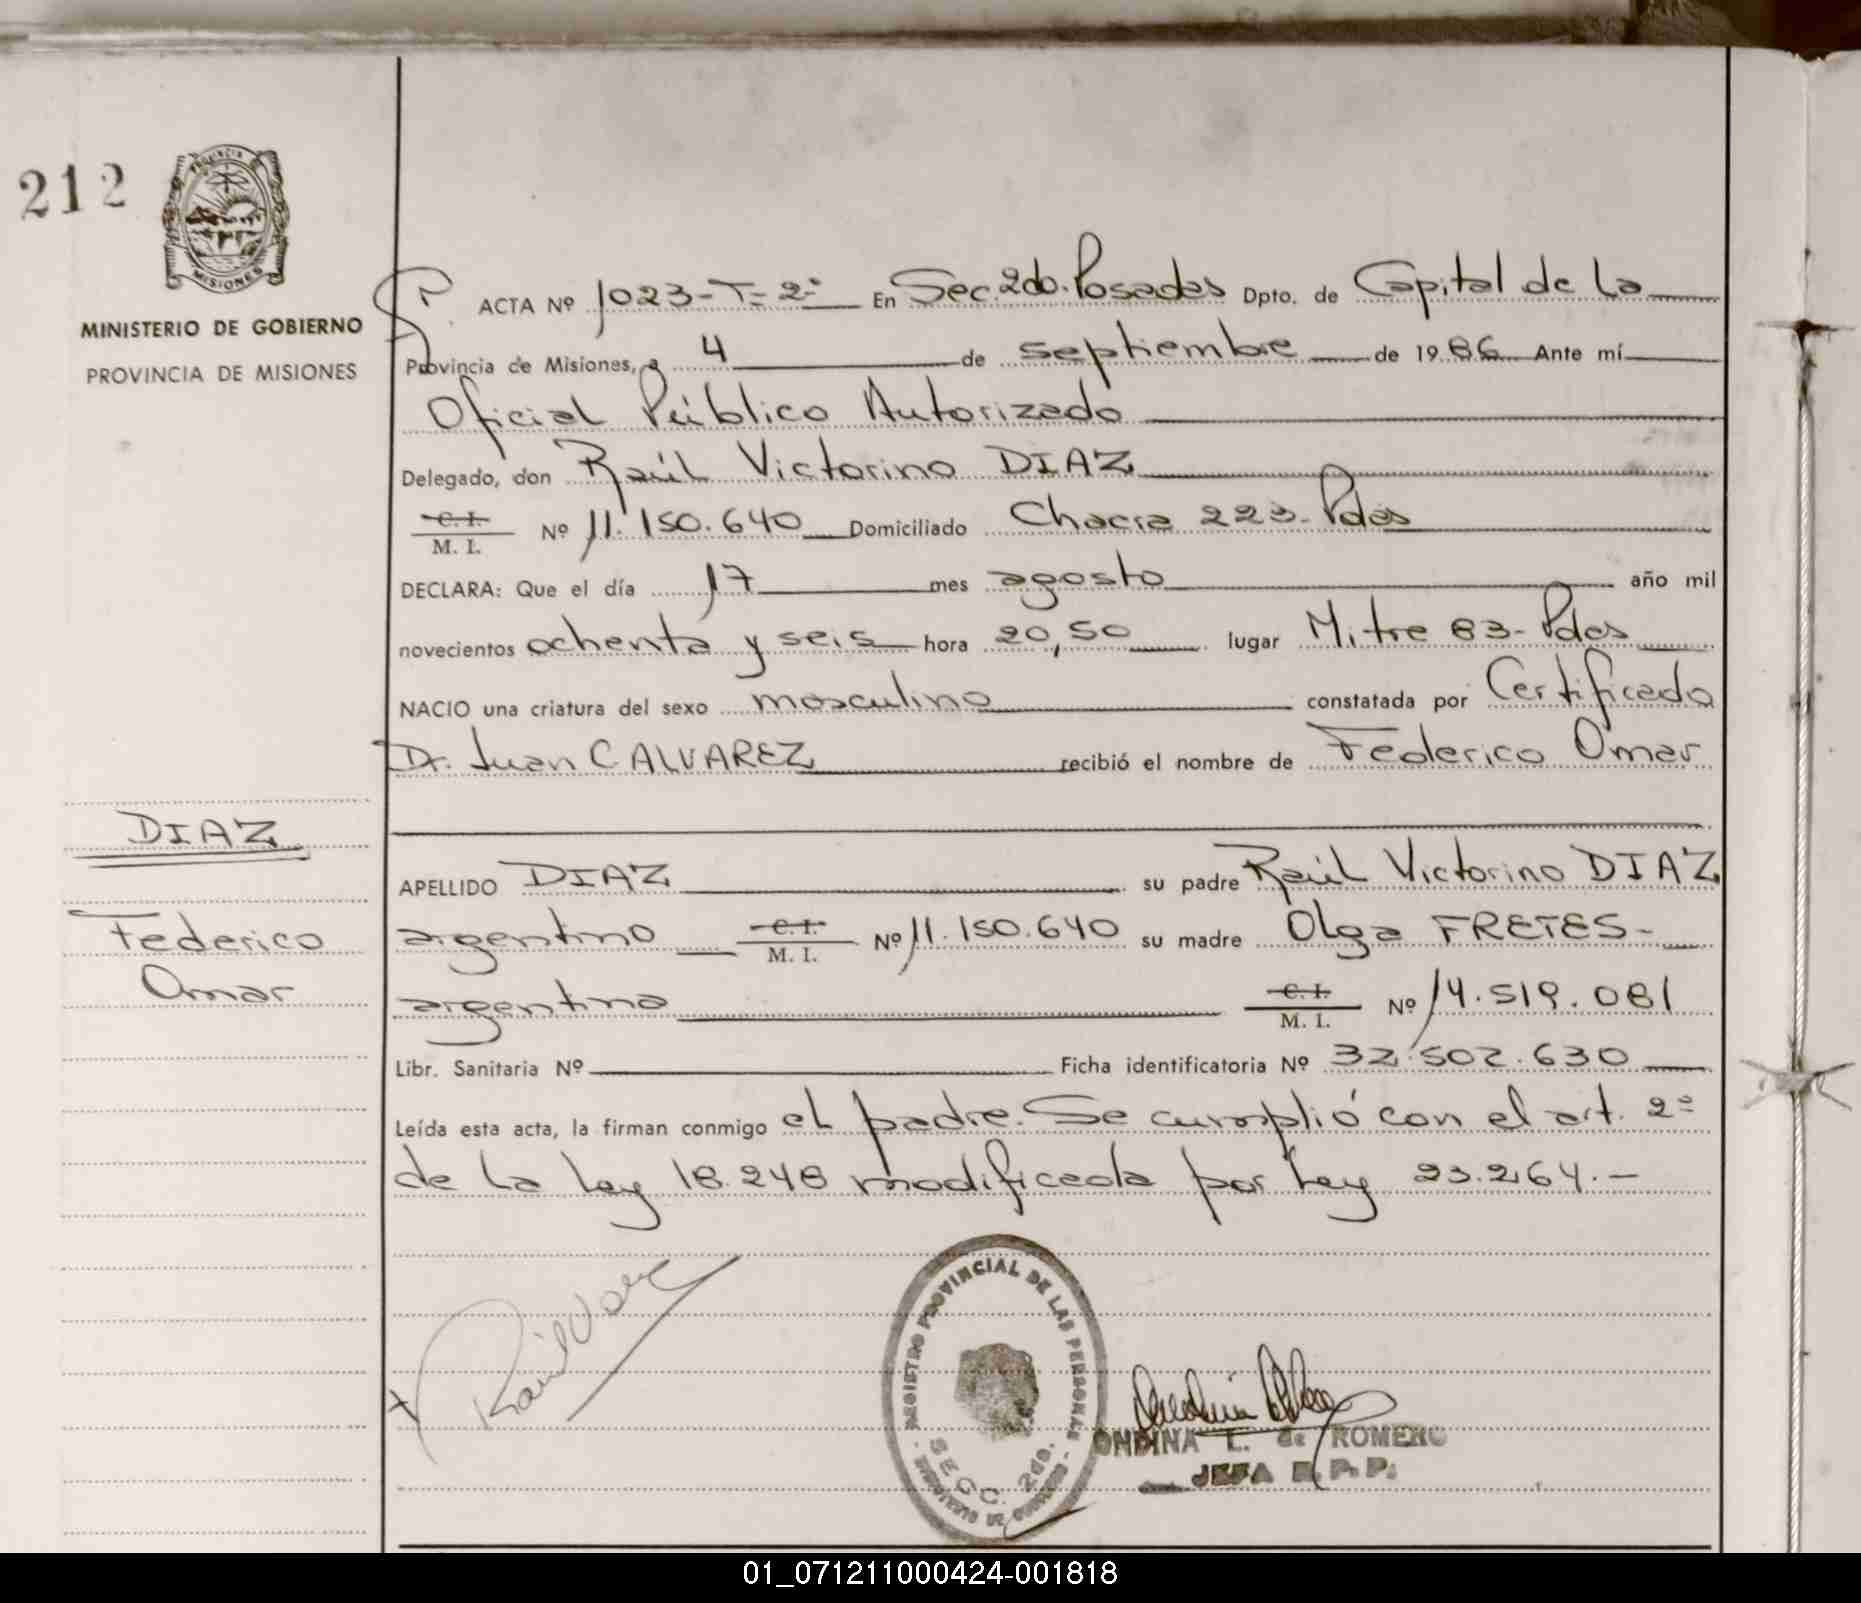 212
PROVINCIA DE
MISIONES
MINISTERIO DE GOBIERNO
PROVINCIA DE MISIONES
DIAZ
Federico
Omar
ACTA Nº 1023-T=2º En Sec. 2do. Posadas Dpto. de Capital de La
Provincia de Misiones, a 4 de septiembre de 1986 Ante mí
Oficial Público Autorizado
Delegado, don Raúl Victorino DIAZ
C. I.
M. I. Nº 11.150.640 Domiciliado Chacra 223-Pdas
DECLARA: Que el día 17 mes agosto año mil
novecientos ochenta y seis hora 20,50 lugar Mitre 83-Pdas
NACIO una criatura del sexo masculino constatada por Certificado
Dr. Juan C ALVAREZ recibió el nombre de Federico Omar
APELLIDO DIAZ su padre Raúl Victorino DIAZ
argentino C. I.
M. I. Nº 11.150.640 su madre Olga FRETES-
argentina C. I.
M. I. Nº 14.519.081
Libr. Sanitaria Nº Ficha identificatoria Nº 32.502.630
Leída esta acta, la firman conmigo el padre. Se cumplió con el art. 2º
de la Ley 18.248 modificada por Ley 23.264.-
REGISTRO PROVINCIAL DE LAS PERSONAS
SECC. 2da.
MINISTERIO DE GOBIERNO
ONDINA L. de ROMERO
JEFA R. P. P.
01_071211000424-001818